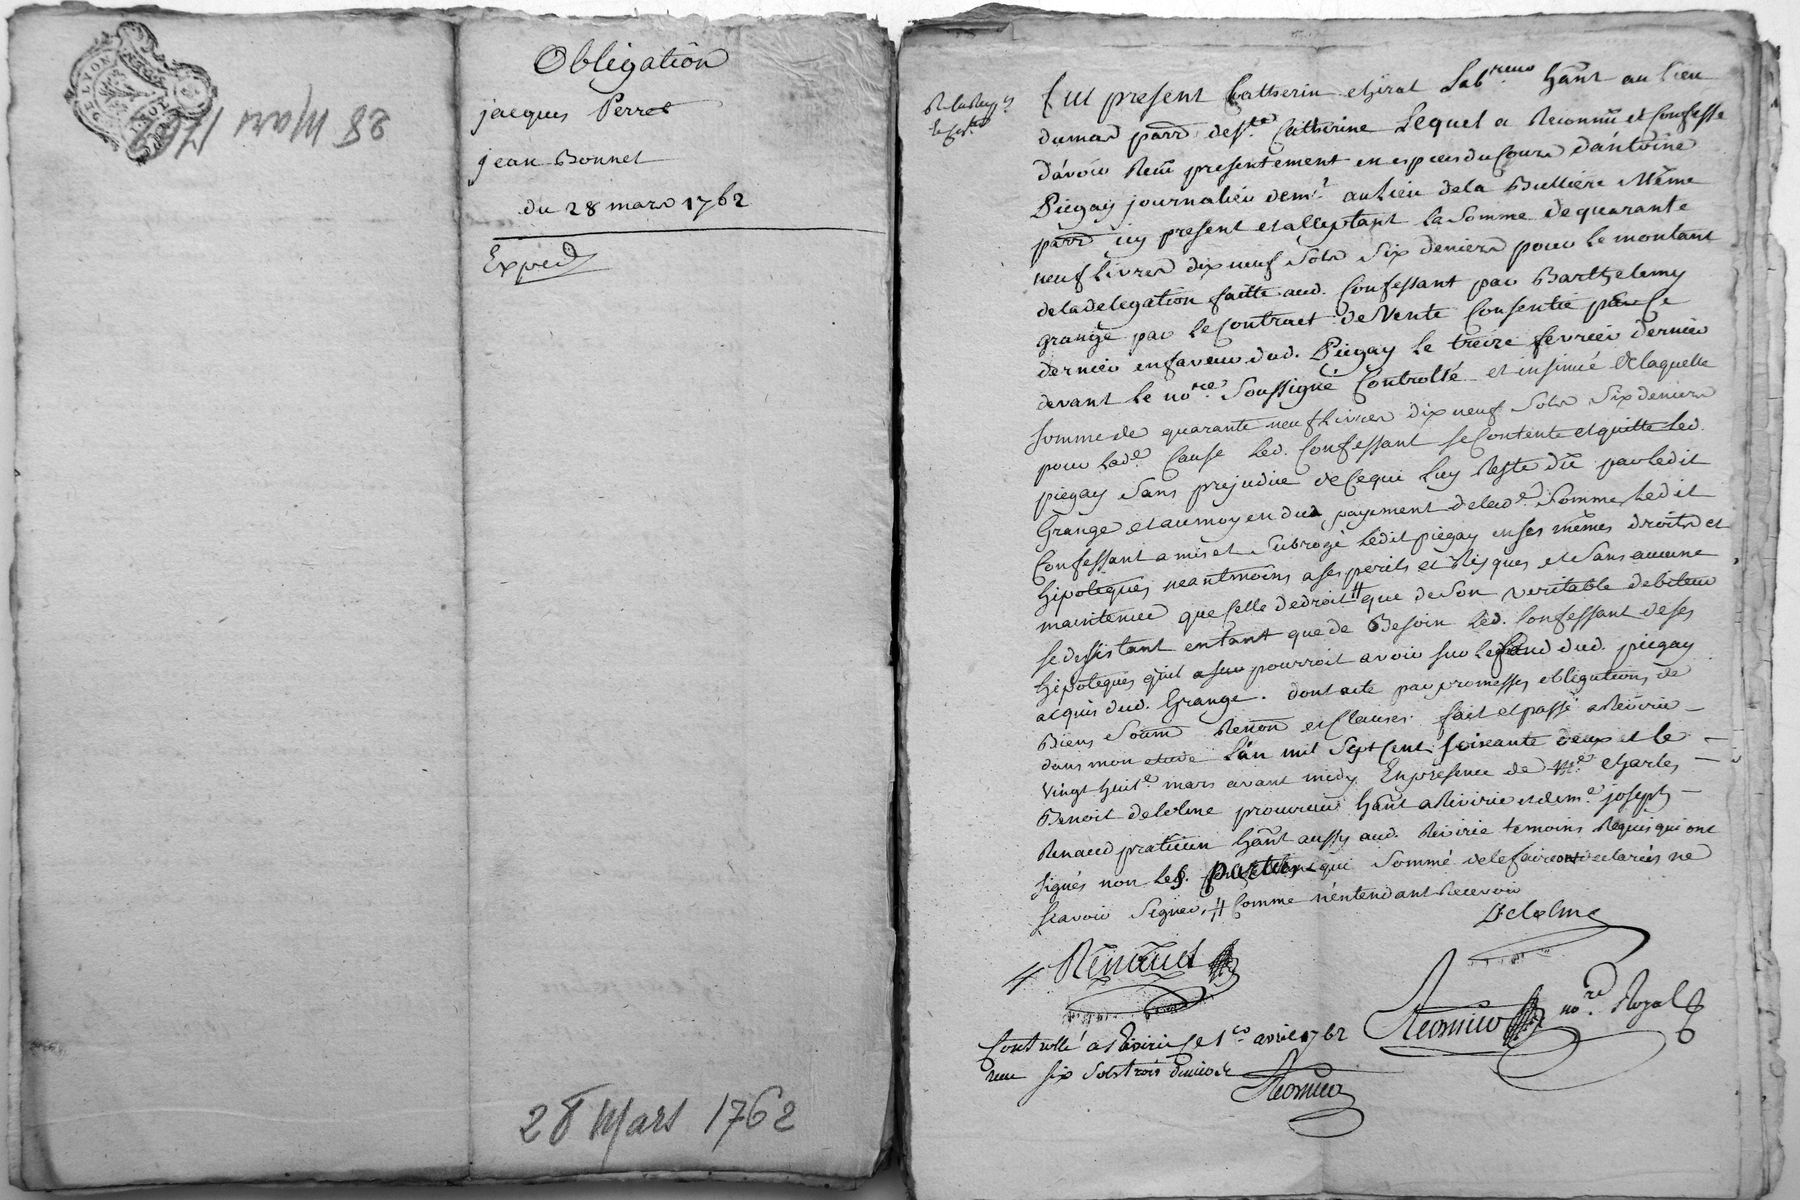 DE LYON
28 Mars 1762
Obligation
jacques Perret
jean Bonnet
du 28 mars 1762
Exped
28 Mars 1762
fut present Catherin Lab.reur hãnt au lieu
dumas parr de s.te Catherine Lequel a Reconnu et Confessé
d'avoir Reçu presentement en especes du Cours d'antoine
Piegay journalier dem.t au lieu de la Bulliere Même
parr icy present et acceptant la somme de quarante
neuf livres dix neuf sols six deniers pour le montant
de la delegation faitte aud. Confessant par Barthelemy
grange par le Contract de Vente Consentie par Ce
dernier en faveur dud. Piegay le treize fevrier dernier
devant le no.re soussigné Controllé et insinué de laquelle
somme de quarante neuf livres dix neuf sols six deniers
pour lad.e Cause led. Confessant se Contente et quitte led.
piegay sans prejudice de Ce qui luy Reste dû par ledit
Grange et au moyen du payement de lad.e somme ledit
Confessant a mis et subrogé ledit piegay en ses mêmes droits et
hipoteques neantmoins a ses perils et Risques et sans aucune
maintenue que Celle de droit # que de son veritable debiteur
se desistant entant que de Besoin led. Confessant de ses
hipoteques qu'il a pourroit avoir sur le fond dud. piegay
acquis dud. Grange. dont acte par promesses obligations de
Biens Soum Renon et Clauses. fait et passé a Riverie
dans mon etude L'an mil sept Cent soixante deux et le
vingt huit.e mars avant midy En presence de M.e Charles
Benoit delolme procureur hãnt a Riverie et de m.e joseph
Renaud praticien hãnt aussy aud. Riverie temoins Requis qui ont
signés non les. parties qui sommé de le faire ont declarés ne
scavoir signer, # Comme n'entendant Recevoir
Delolme
Renaud
no.re Royal
Controllé a Riverie le 1.er avril 1762
reçu six sols trois deniers